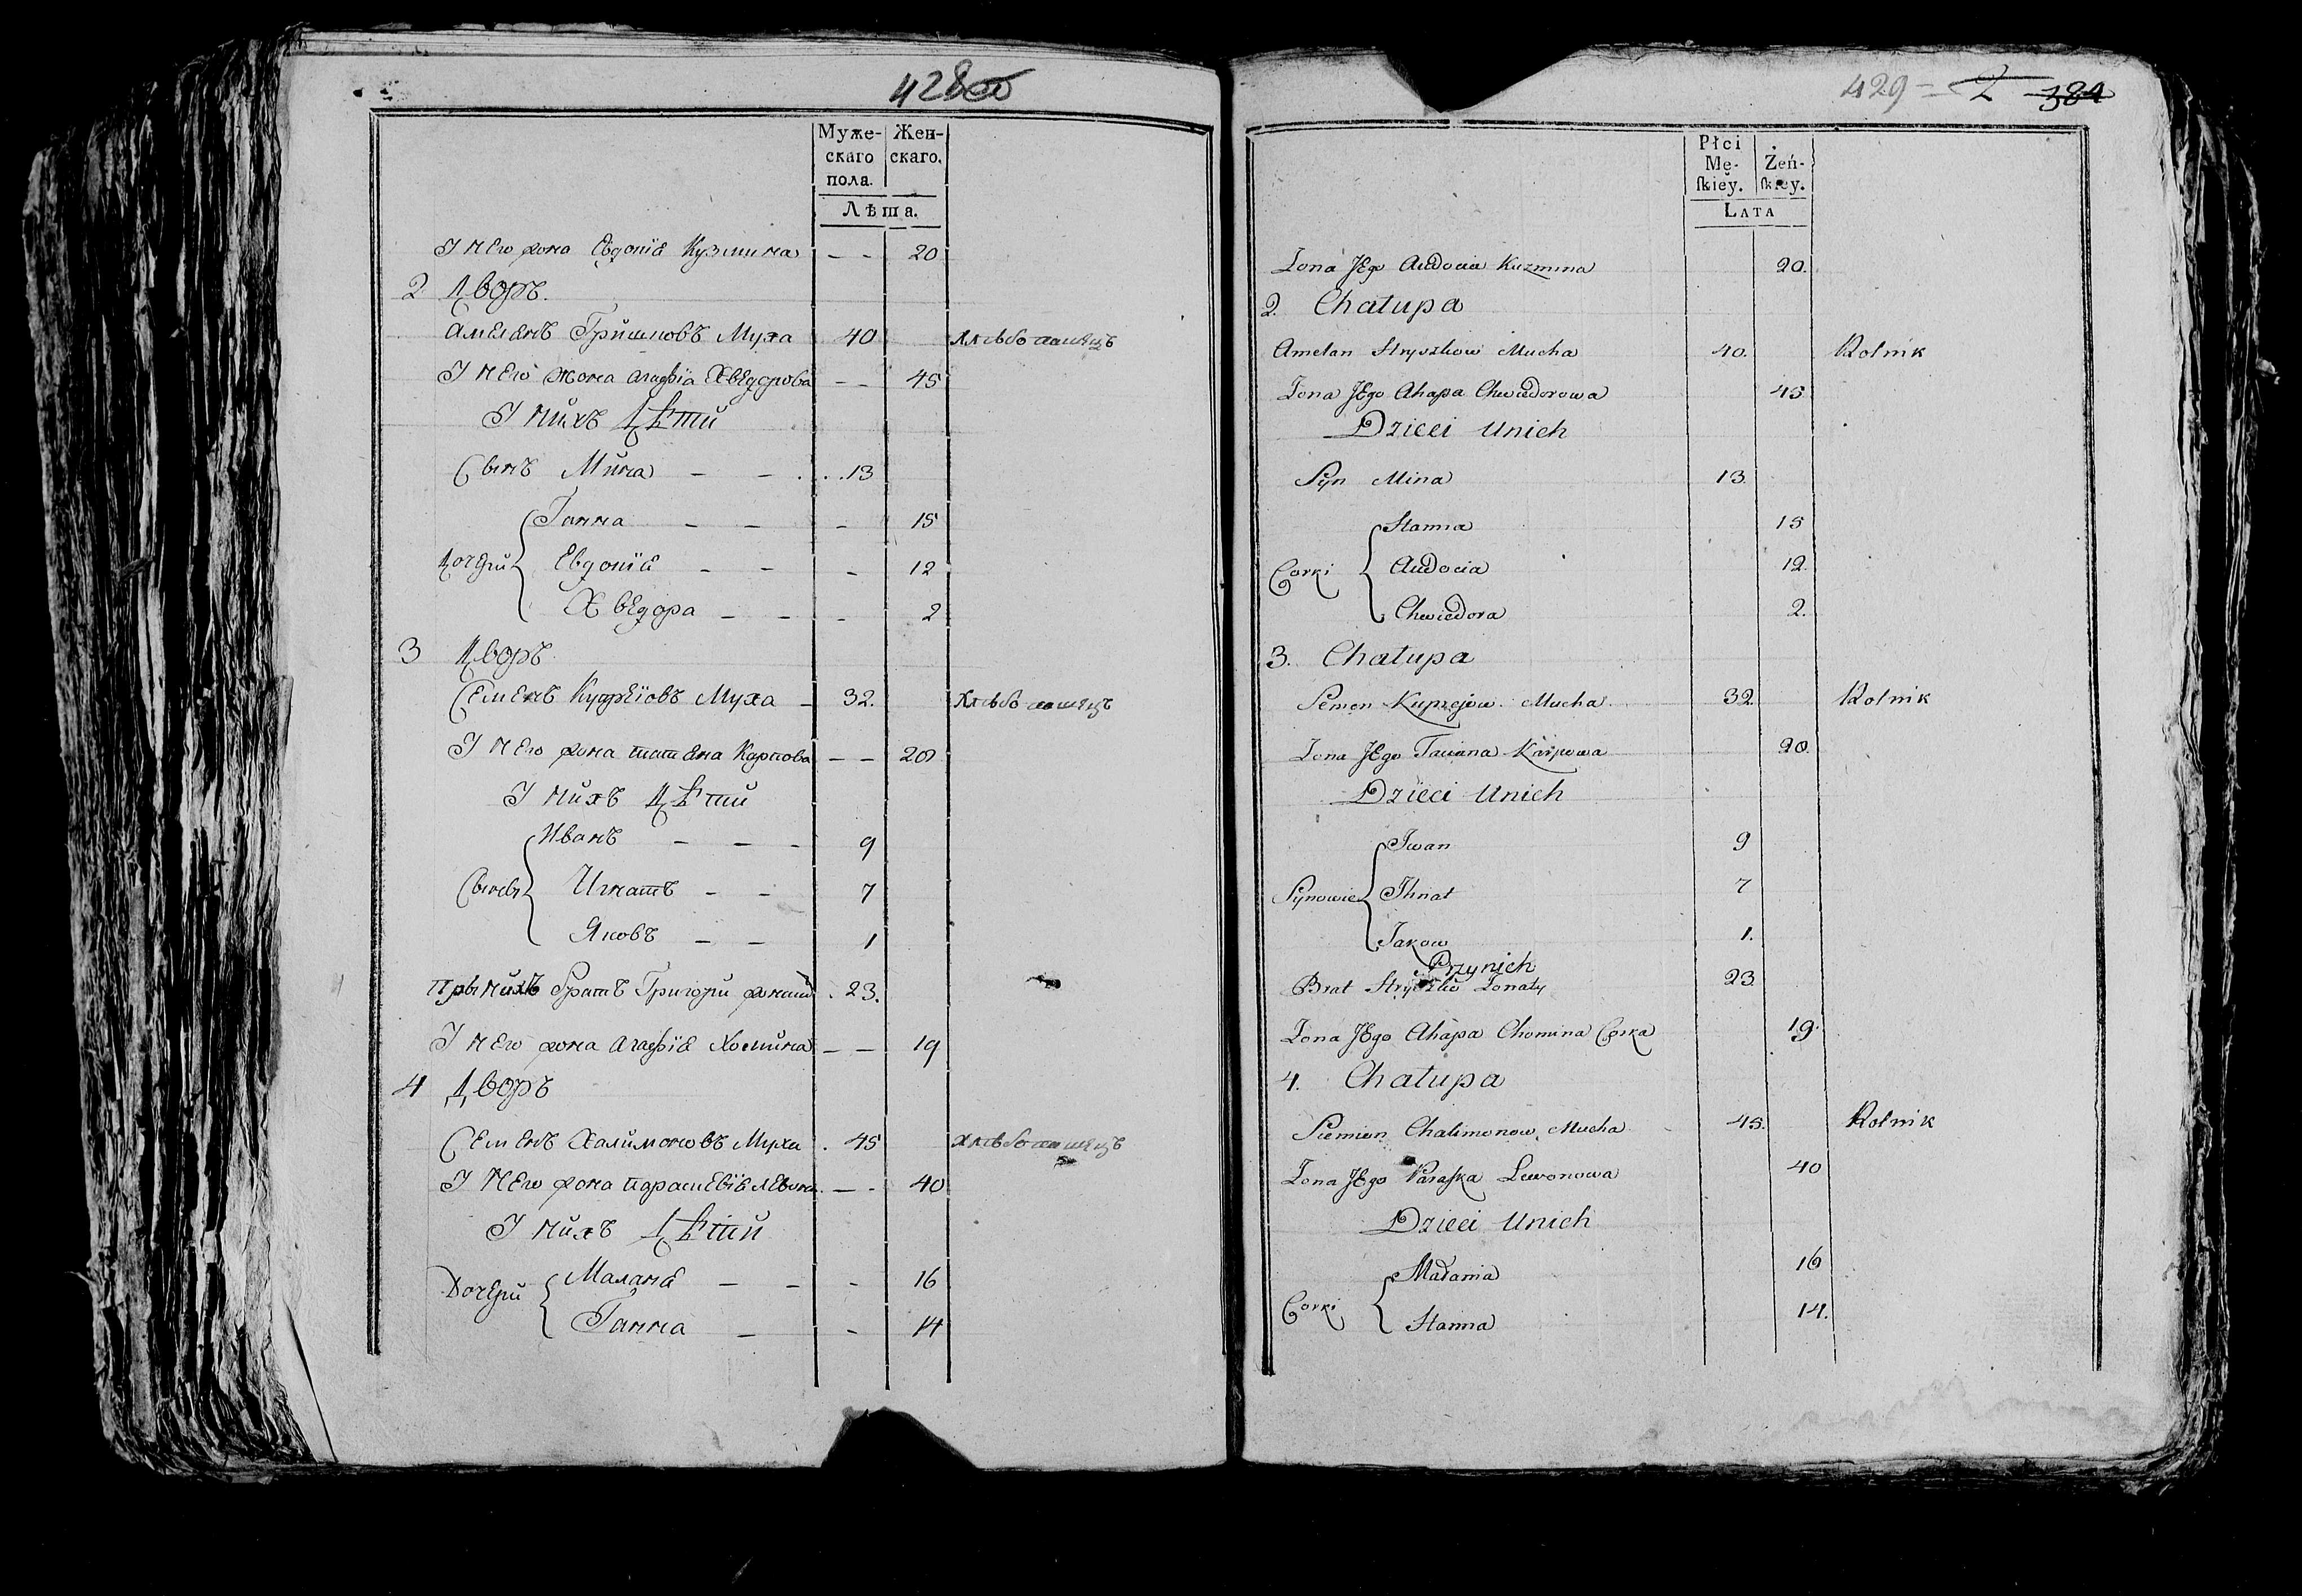 428
Муже-
скаго
пола.
Жен-
скаго.
Лѣта.
У него жона Евдокія Кузмина - - 20
2 Дворъ.
Амелянъ Гришковъ Муха 40 хлѣбопашецъ
У него жона Агафія Хведорова - - 45
У нихъ Дѣти
Сынъ Мина - - 13
Ганна - - - 15
Дочери Евдокія - - - 12
Хведора - - - 2
3 Дворъ
Семенъ Купреіовъ Муха - 32. хлѣбопашецъ
У него жона татяна Карпова - - 20
У нихъ Дѣти
Иванъ - - - 9
Сыновя Игнатъ - - 7
Яковъ - - 1
При нихъ братъ Григори женати 23.
У него жона Агафія Хомина - - 19
4 Дворъ
Семенъ Халимоновъ Муха 45 хлѣбопашецъ
У него жона парасцевія Левона - - 40
У нихъ Дѣти
Маланя - - - 16
Дочери
Ганна - - 14
429 = 2 384
Płci
Mę-
ſkiey.
Żeń-
ſkiey.
LATA
Żona Jego Audocia Kuzmina 20.
2. Chałupa
Amelan Hryszkow Mucha 40. Rolnik
Żona Jego Ahapa Chwiedorowa 45
Dzieci Unich
Syn Mina 13.
Hanna 15
Corki Audocia 12.
Chwiedora 2.
3. Chałupa
Semen Kuprejow Mucha 32 Rolnik
Żona Jego Taciana Karpowa 20.
Dzieci Unich
Iwan 9
Synowie Ihnat 7
Jakow 1.
Przynich
Brat Hryszko Żonaty 23
Żona Jego Ahapa Chomina Corka 19.
4. Chałupa
Siemion Chalimonow Mucha 45. Rolnik
Żona Jego Paraſka Lewonowa 40
Dzieci Unich
Małania 16
Corki
Hanna 14.